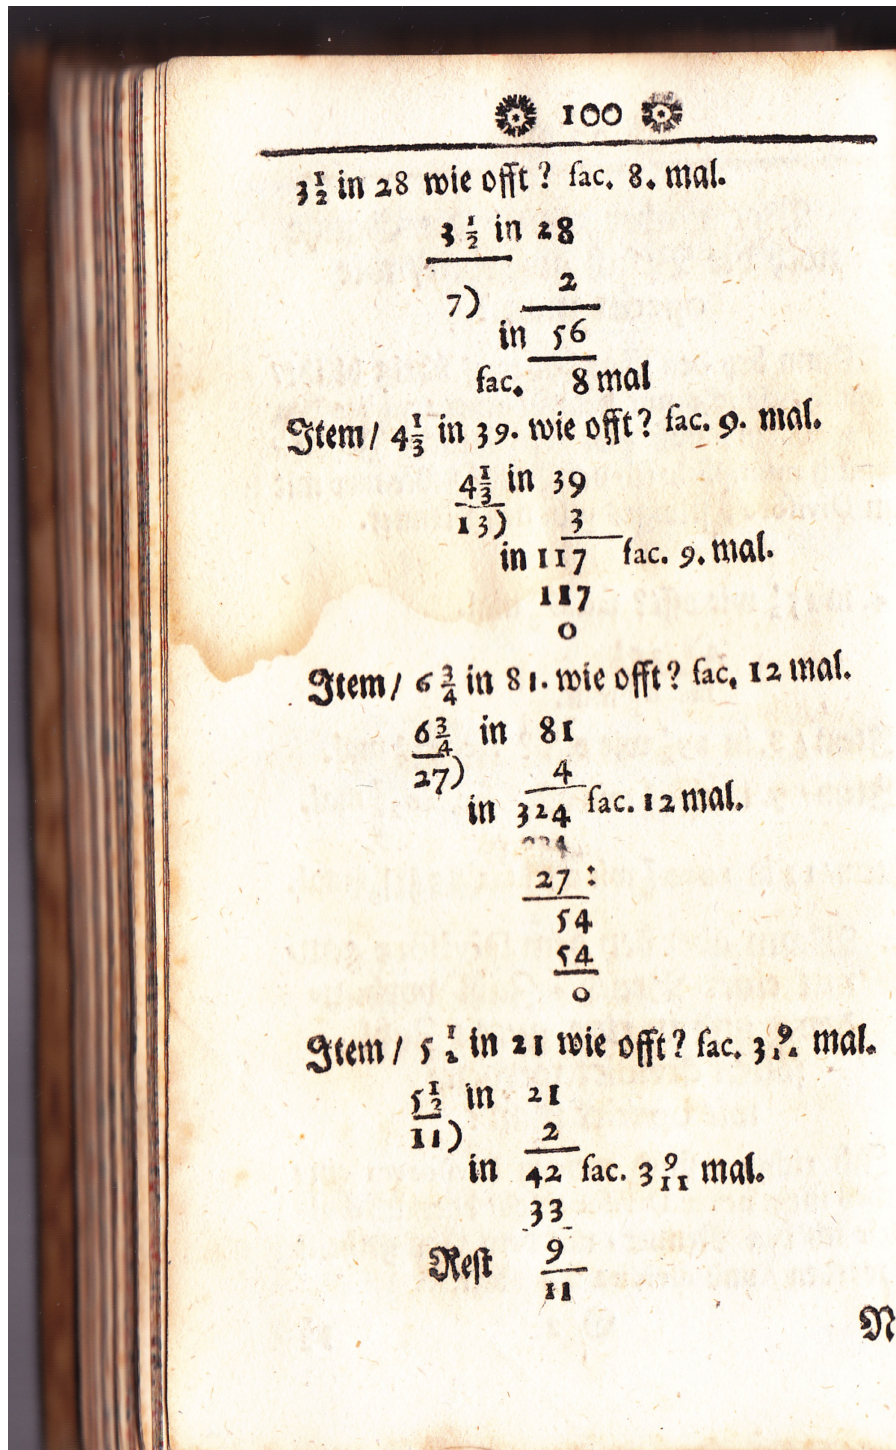 100
3 1/2 in 28 wie offt? fac. 8. mal.
3 1/2 in 28
7) 2
in 56
fac. 8 mal
Item / 4 1/3 in 39. wie offt? fac. 9. mal.
4 1/3 in 39
13) 3
in 117 fac. 9. mal.
117
0
Item / 6 3/4 in 81. wie offt? fac. 12 mal.
6 3/4 in 81
27) 4
in 324 fac. 12 mal.
27 :
54
54
0
Item / 5 1/2 in 21 wie offt? fac. 3 mal.
5 1/2 in 21
11) 2
in 42 fac. 3 9/11 mal.
33
Rest 9
11
N